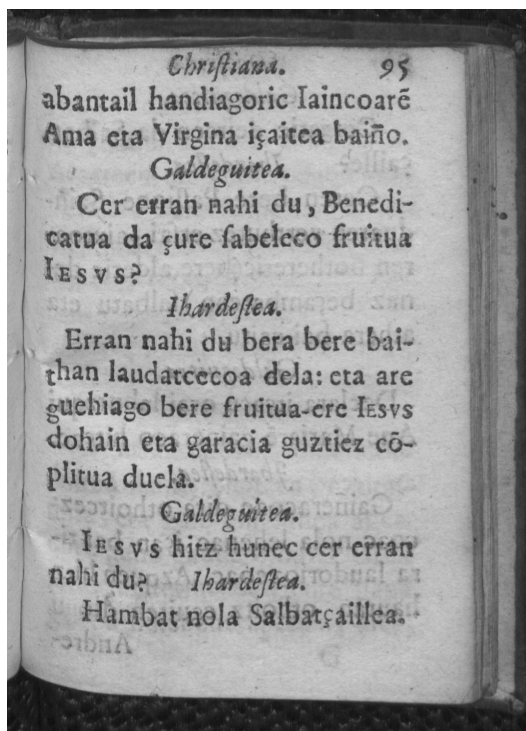 Chriſtiana. 95
abantail handiagoric Iaincoarē
Ama eta Virgina içaitea baiño.
Galdeguitea.
Cer erran nahi du, Benedi-
catua da çure ſabeleco fruitua
IESVS?
Ihardeſtea.
Erran nahi du bera bere bai-
than laudatcecoa dela: eta are
guehiago bere fruitua-ere IESVS
dohain eta garacia guztiez cō-
plitua duela.
Galdeguitea.
IESVS hitz hunec cer erran
nahi du? Ihardeſtea.
Hambat nola Salbatçaillea.